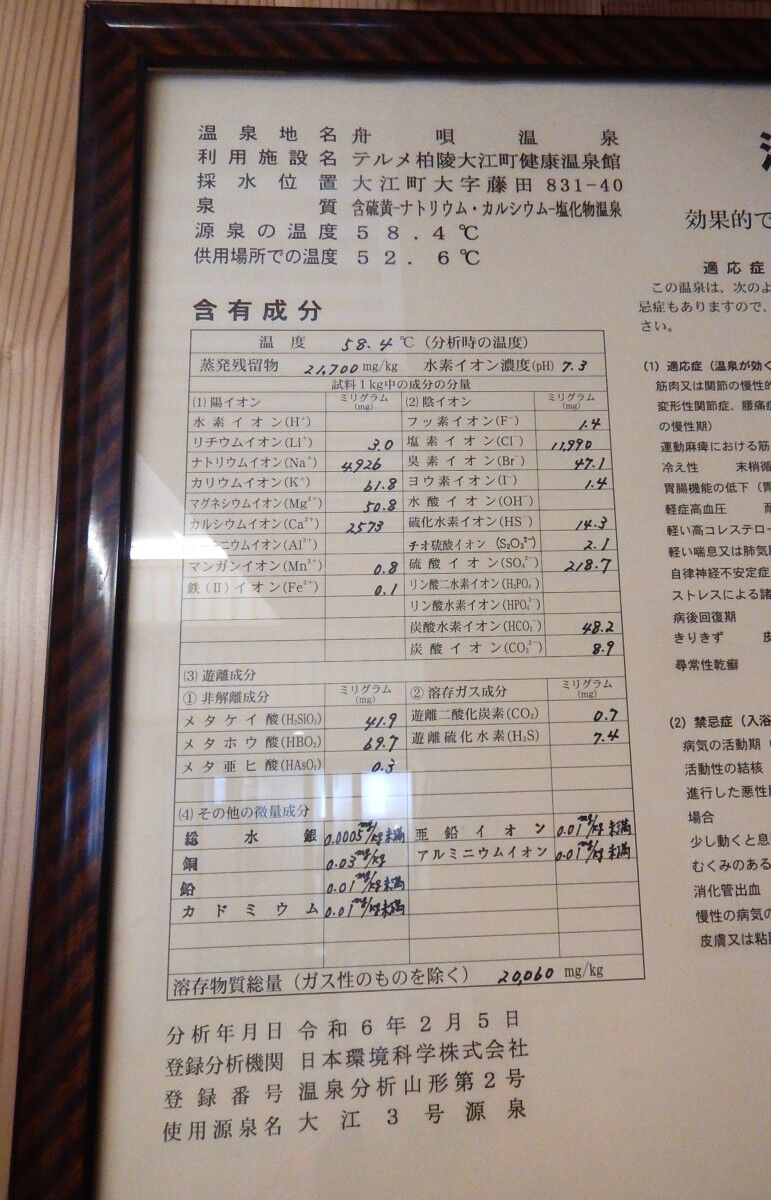 温泉地名 舟唄温泉
利用施設名 テルメ柏陵大江町健康温泉館
採水位置 大江町大字藤田831-40
泉質 含硫黄-ナトリウム・カルシウム-塩化物温泉
源泉の温度 58.4℃
供用場所での温度 52.6℃
含有成分
温度 58.4℃(分析時の温度)
蒸発残留物 21,700 mg/kg 水素イオン濃度(pH) 7.3
試料1kg中の成分の分量
(1)陽イオン ミリグラム(mg) (2)陰イオン ミリグラム(mg)
水素イオン(H⁺) フッ素イオン(F⁻) 1.4
リチウムイオン(Li⁺) 3.0 塩素イオン(Cl⁻) 11,990
ナトリウムイオン(Na⁺) 4926 臭素イオン(Br⁻) 47.1
カリウムイオン(K⁺) 61.8 ヨウ素イオン(I⁻) 1.4
マグネシウムイオン(Mg²⁺) 50.8 水酸イオン(OH⁻)
カルシウムイオン(Ca²⁺) 2573 硫化水素イオン(HS⁻) 14.3
ニウムイオン(Al³⁺) チオ硫酸イオン (S₂O₃²⁻) 2.1
マンガンイオン(Mn²⁺) 0.8 硫酸イオン(SO₄²⁻) 218.7
鉄(II)イオン(Fe²⁺) 0.1 リン酸二水素イオン(H₂PO₄⁻)
リン酸水素イオン(HPO₄²⁻)
炭酸水素イオン(HCO₃⁻) 48.2
炭酸イオン(CO₃²⁻) 8.9
(3)遊離成分
①非解離成分 ミリグラム(mg) ②溶存ガス成分 ミリグラム(mg)
メタケイ酸(H₂SiO₃) 41.9 遊離二酸化炭素(CO₂) 0.7
メタホウ酸(HBO₂) 69.7 遊離硫化水素(H₂S) 7.4
メタ亜ヒ酸(HAsO₂) 0.3
(4)その他の微量成分
総水銀 0.0005mg/kg未満 亜鉛イオン 0.01mg/kg未満
銅 0.03mg/kg アルミニウムイオン 0.01mg/kg未満
鉛 0.01mg/kg未満
カドミウム 0.01mg/kg未満
溶存物質総量(ガス性のものを除く) 20,060 mg/kg
分析年月日 令和6年2月5日
登録分析機関 日本環境科学株式会社
登録番号 温泉分析山形第2号
使用源泉名 大江3号源泉
効果的で
適応症
この温泉は、次のよ
忌症もありますので、
さい。
(1) 適応症(温泉が効く
筋肉又は関節の慢性的
変形性関節症、腰痛症
の慢性期)
運動麻痺における筋
冷え性 末梢循
胃腸機能の低下(胃
軽症高血圧 耐
軽い高コレステロー
軽い喘息又は肺気腫
自律神経不安定症
ストレスによる諸
病後回復期
きりきず 皮
尋常性乾癬
(2) 禁忌症(入浴
病気の活動期(
活動性の結核
進行した悪性腫
場合
少し動くと息
むくみのある
消化管出血
慢性の病気の
皮膚又は粘膜